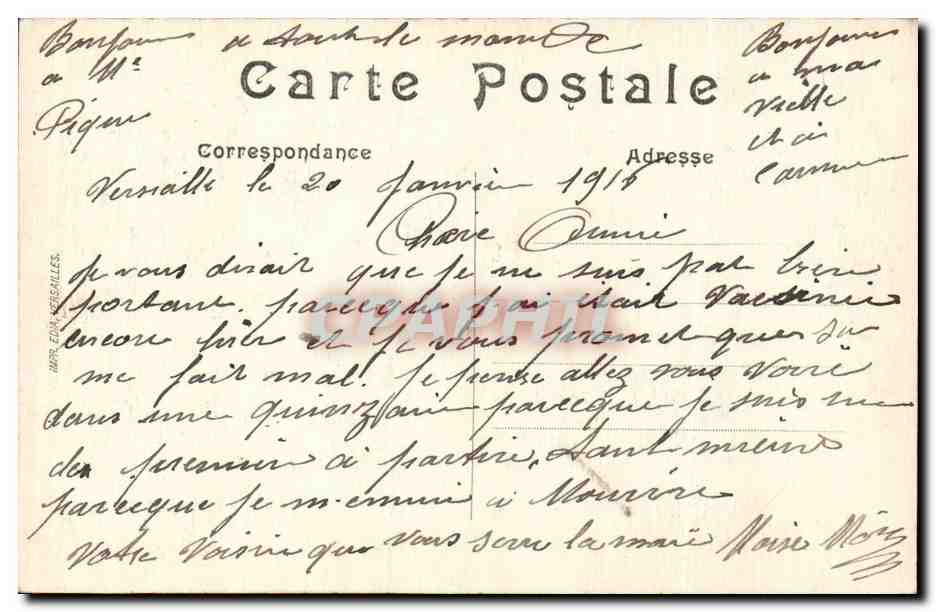 Bonjour a tout le monde
a Me
Pigeu
Bonjour
a ma
Vielle
et a
Carmen
Carte Postale
Correspondance
Adresse
Versaille le 20 Janvier 1916
Chere Amie
Je vous dirait que je ne suis pat bien
portant. parceque j'ai etait Vacsinie
encore hier et je vous promet que sa
me fait mal. Je pense allez vous Voire
dans une quinzaine parceque je suis un
des premier a partire. tant mieux
parceque je m'ennuie a Mourire
Votre Voisin que vous serre la main Moise
IMPR. EDIA, VERSAILLES.
CPAPHIL